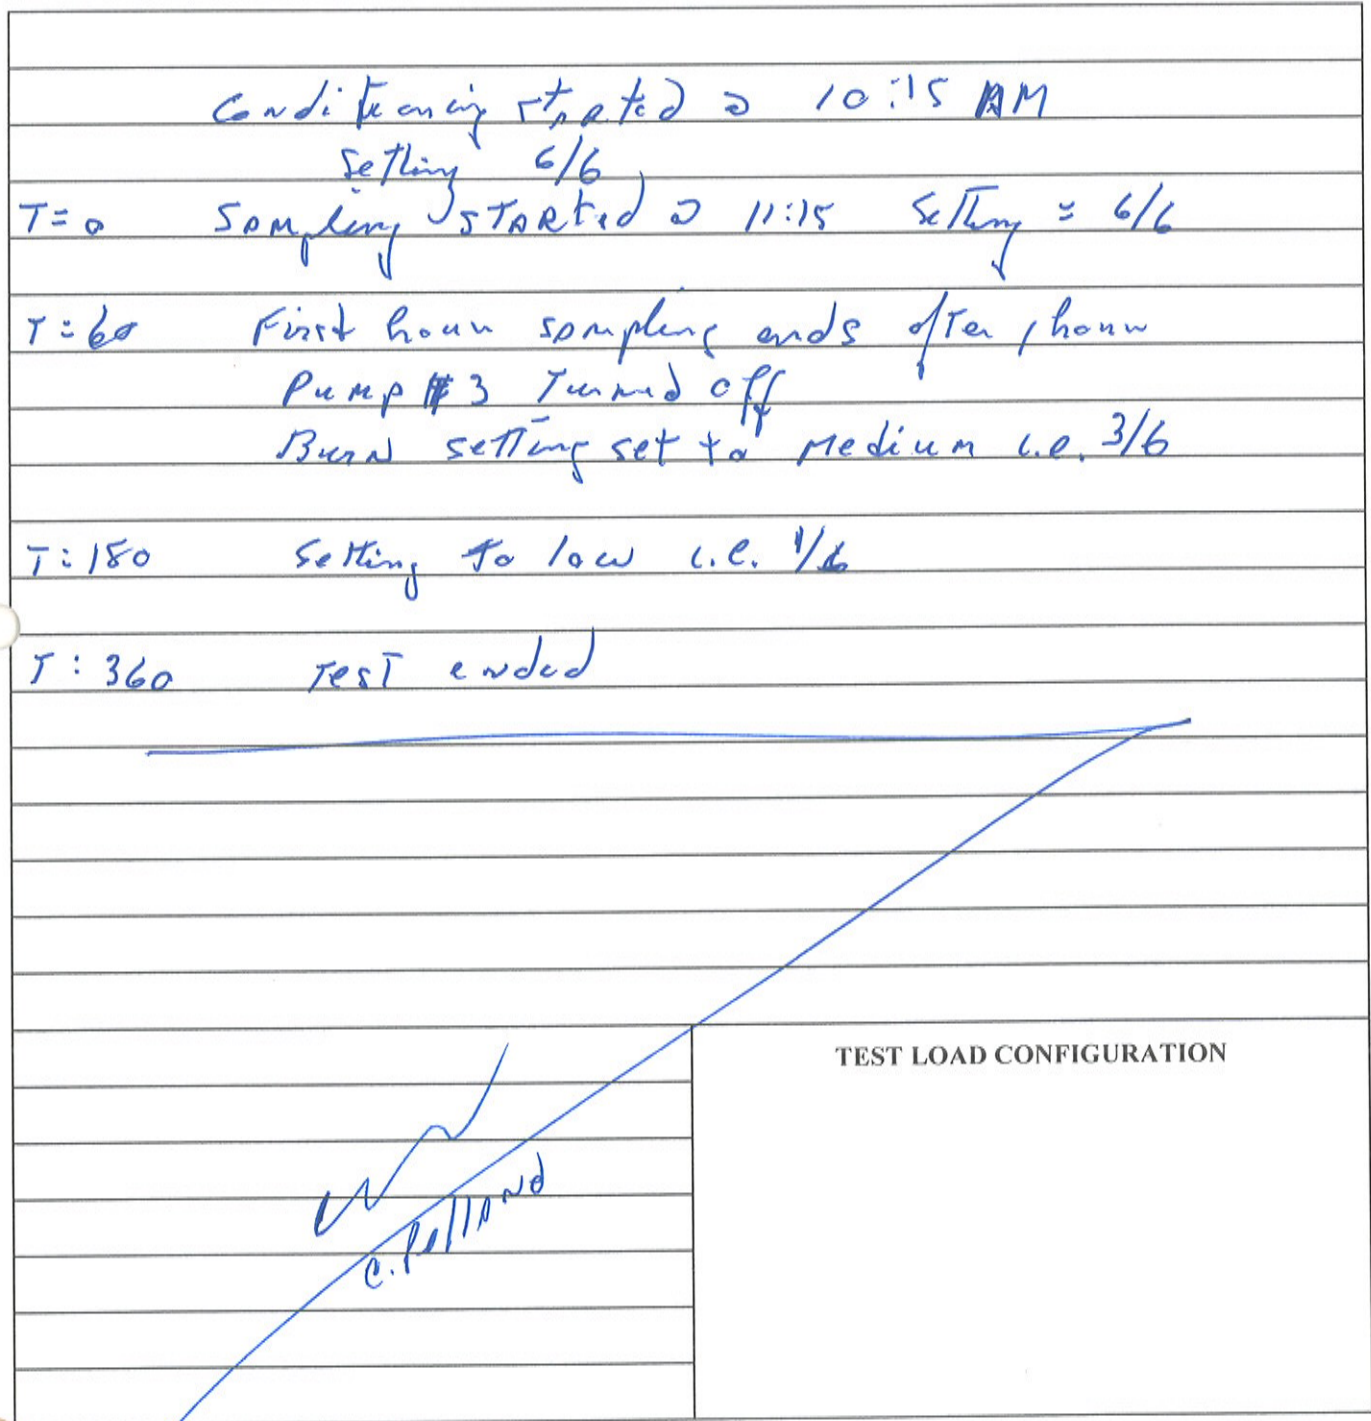 Conditioning started @ 10:15 AM
Setting 6/6
T=0 Sampling STARTED @ 11:15 Setting = 6/6
T=60 First hour sampling ends after 1 hour
Pump #3 Turned off
Burn setting set to Medium i.e. 3/6
T:180 Setting to low i.e. 1/6
T:360 Test ended
TEST LOAD CONFIGURATION
C. Pelland